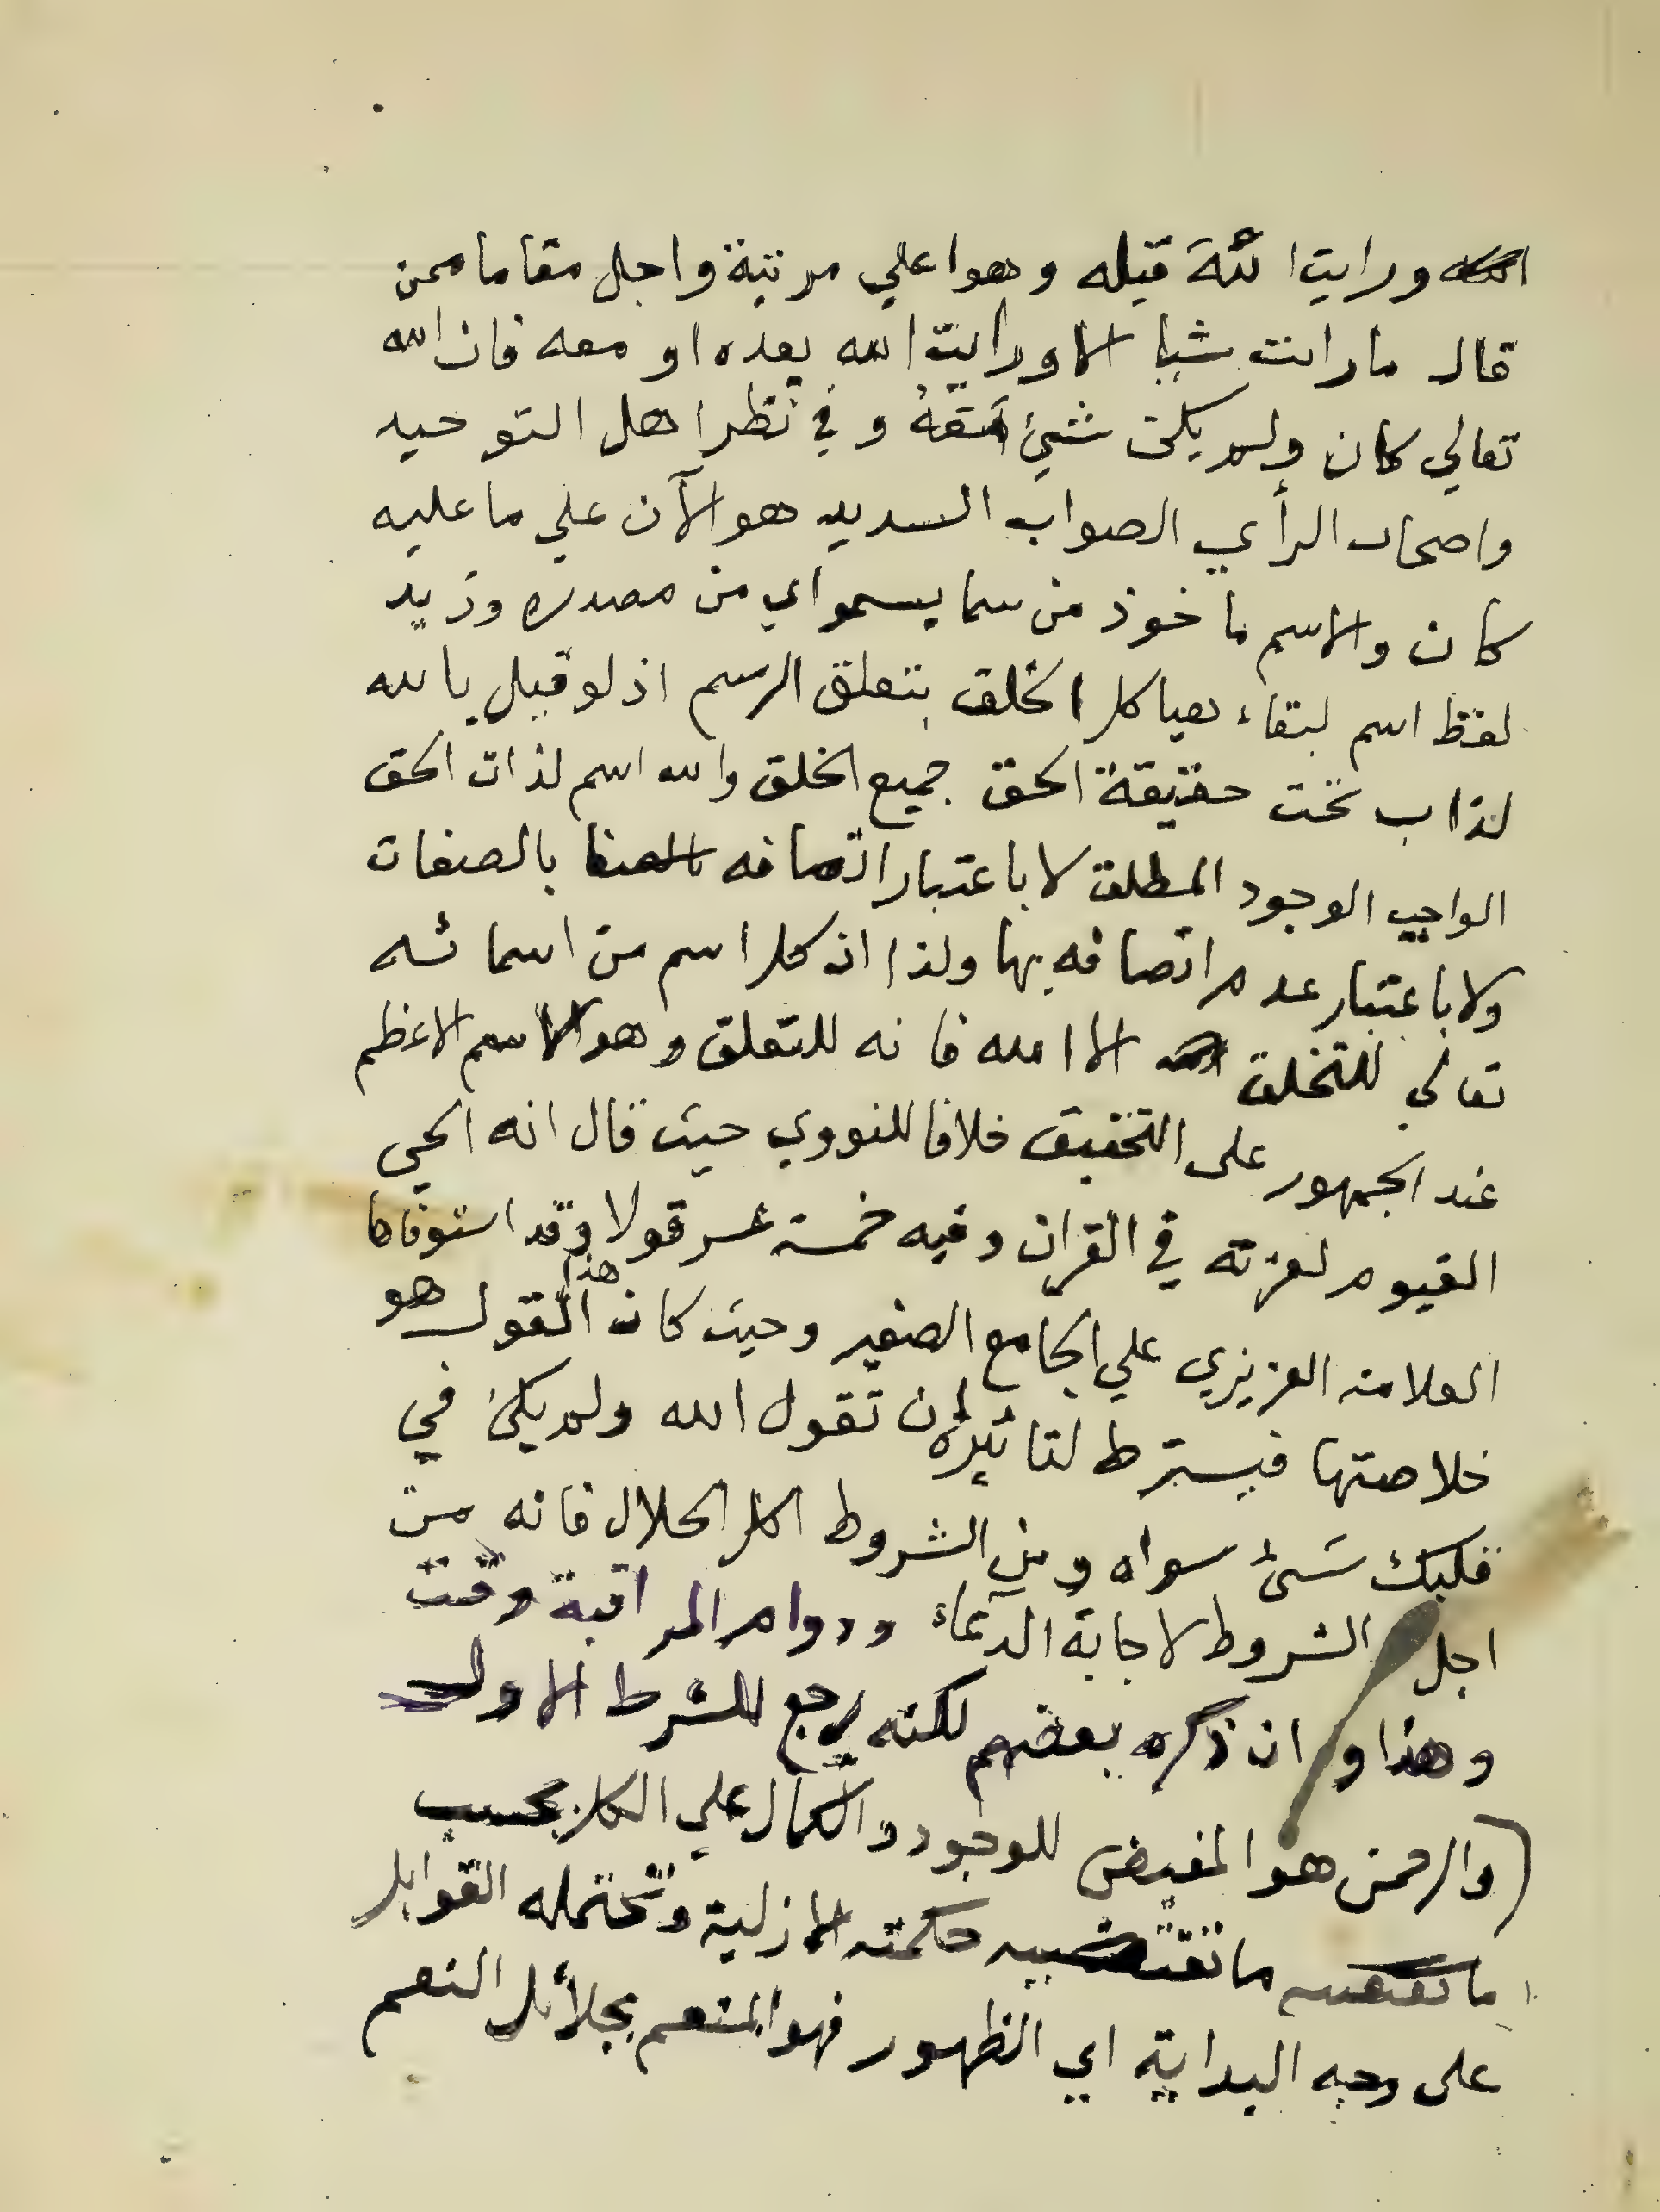 ورايت الله قبله وهو اعلي مرتبة واجل مقاما ممن
قال ما رايت شيا الا ورايت الله بعده او معه فان الله
تعالي كان ولم يكن شيئ معه وفي نظر اهل التوحيد
واصحاب الرأي الصواب السديد هو الآن علي ما عليه
كان والاسم ماخوذ من سما يسمو اي من مصدره وزيد
لفظ اسم لبقاء هياكل الخلق بتعلق الرسم اذ لو قيل بالله
لذاب تحت حقيقة الحق جميع الخلق والله اسم لذات الحق
الواجب الوجود المطلق لا باعتبار اتصافه بالصفات
ولا باعتبار عدم اتصافه بها ولذا ان كل اسم من اسمائه
تعالي للتخلق الا الله فانه للتعلق وهو الاسم الاعظم
عند الجمهور على التحقيق خلافا للنووي حيث قال انه الحي
القيوم لعزته في القران وفيه خمسة عسر قولا وقد استوفاها
العلامة العزيزي علي الجامع الصغير وحيث كان هذا القول هو
خلاصتها فيسترط لتاثيره ان تقول الله ولم يكن في
قلبك سئ سواه ومن الشروط اكل الحلال فانه من
اجل الشروط لاجابة الدعاء ودوام المراقبة وقت
وهذا وان ذكره بعضهم لكنه يرجع للشرط الاول
(والرحمن هو المفيض للوجود والكمال علي الكل بحسب
ما تقتضيه حكمته الازلية وتحتمله القوابل
على وجه البداية اي الظهور فهو المنعم بجلائل النعم